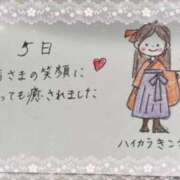 5日
さまの笑顔に
っても癒されました
ハイカラきン